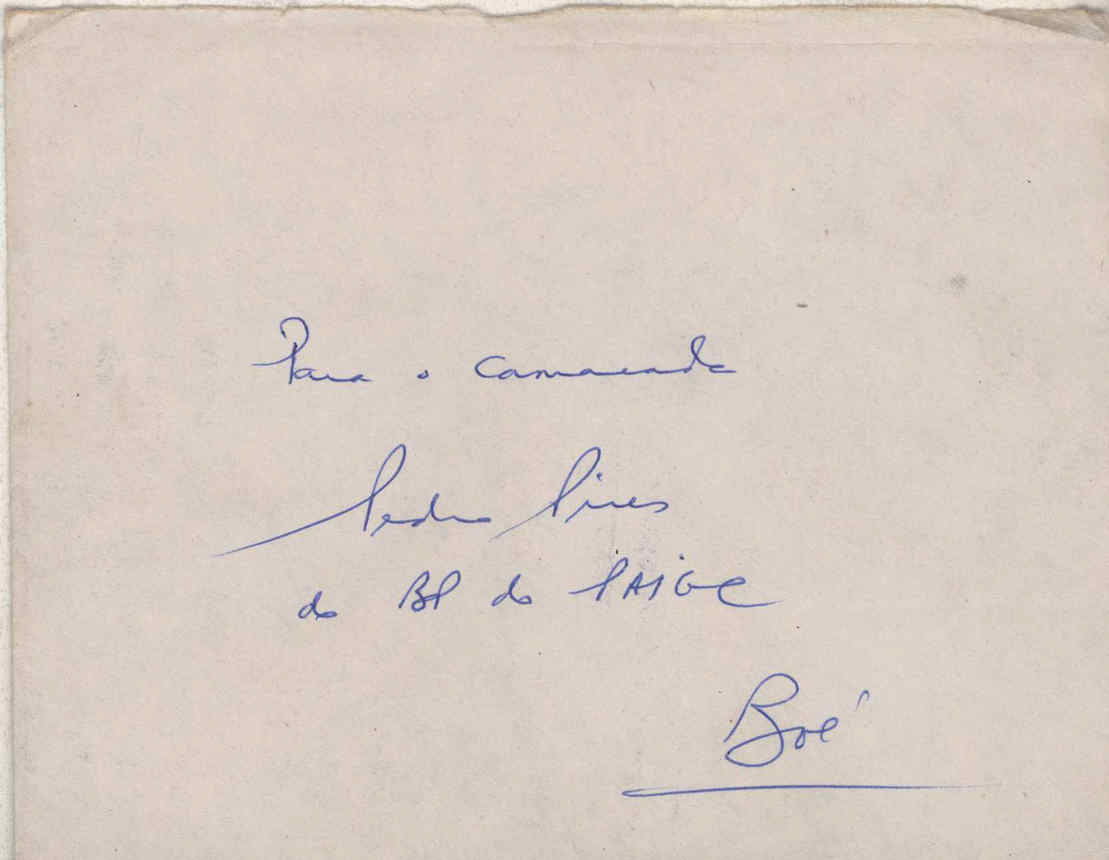 Para o camarada
Pedro Pires
do BP do PAIGC
Boé